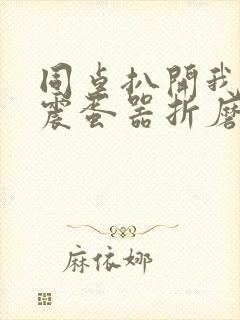 同桌扒開我
震蛋器折磨
麻依娜